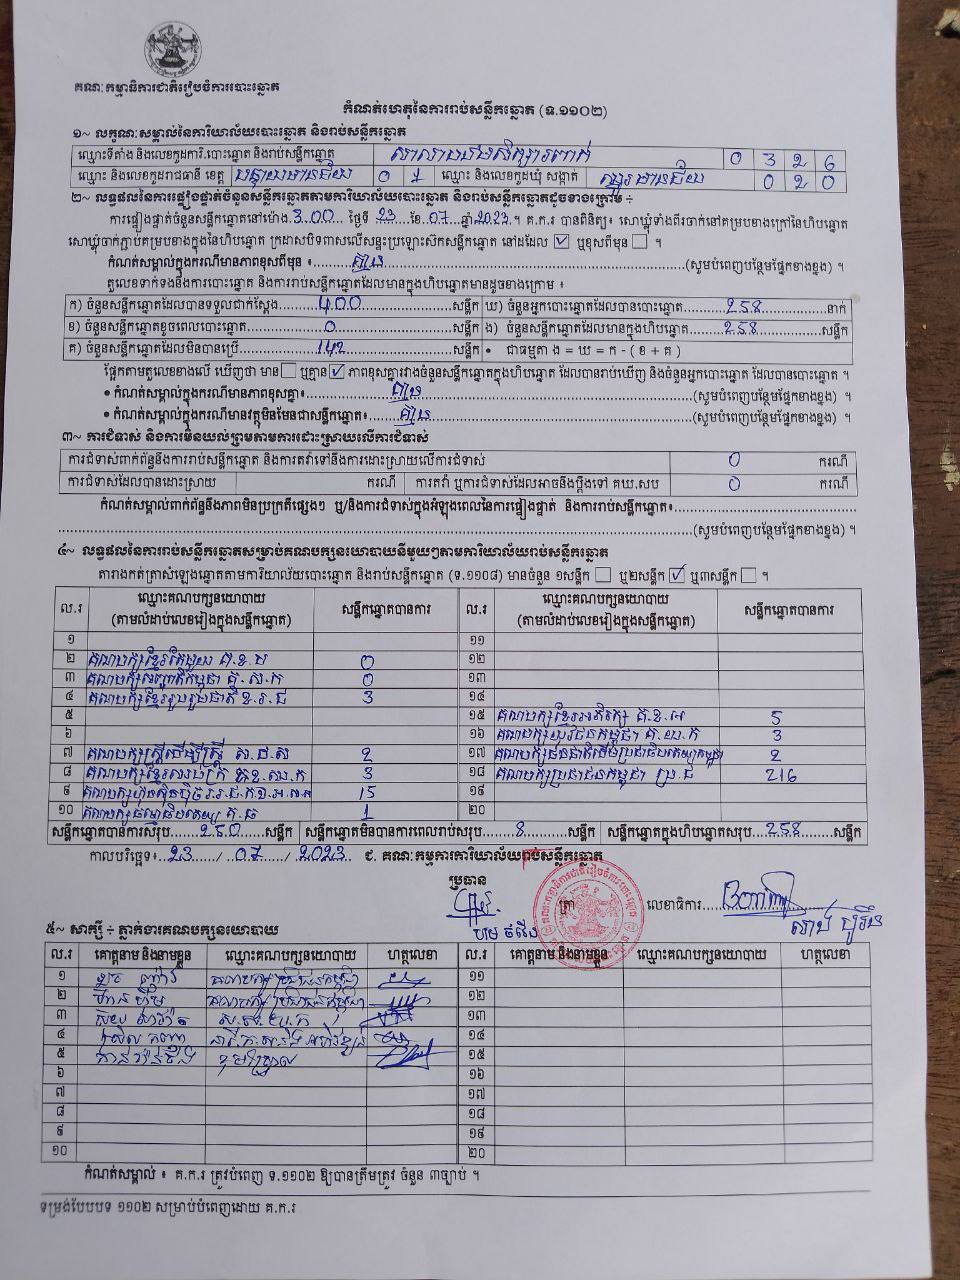 គណៈកម្មាធិការជាតិរៀបចំការបោះឆ្នោត
កំណត់ហេតុនៃការរាប់សន្លឹកឆ្នោត (ទ.១១០២)
១~ លក្ខណៈសម្គាល់នៃការិយាល័យបោះឆ្នោត និងរាប់សន្លឹកឆ្នោត
ឈ្មោះទីតាំង និងលេខកូដការិ.បោះឆ្នោត និងរាប់សន្លឹកឆ្នោត 0 3 2 6
ឈ្មោះ និងលេខកូដរាជធានី ខេត្ត បន្ទាយមានជ័យ 0 1 ឈ្មោះ និងលេខកូដឃុំ សង្កាត់ 0 2 0
២~ លទ្ធផលនៃការផ្ទៀងផ្ទាត់ចំនួនសន្លឹកឆ្នោតតាមការិយាល័យបោះឆ្នោត និងរាប់សន្លឹកឆ្នោតដូចខាងក្រោម ÷
ការផ្ទៀងផ្ទាត់ចំនួនសន្លឹកឆ្នោតនៅម៉ោង 3.00 ថ្ងៃទី 23 ខែ 07 ឆ្នាំ 2023 ។ គ.ក.រ បានពិនិត្យ៖ សោឃ្លុំទាំងពីរចាក់នៅគម្របខាងក្រៅនៃហិបឆ្នោត
សោឃ្លុំចាក់ភ្ជាប់គម្របខាងក្នុងនៃហិបឆ្នោត ក្រដាសបិទពាសលើសន្ទះប្រឡោះស៊កសន្លឹកឆ្នោត នៅដដែល ☑ ឬខុសពីមុន ☐ ។
កំណត់សម្គាល់ក្នុងករណីមានភាពខុសពីមុន ៖ គ្មាន (សូមបំពេញបន្ថែមផ្នែកខាងខ្នង) ។
តួលេខទាក់ទងនឹងការបោះឆ្នោត និងការរាប់សន្លឹកឆ្នោតដែលមានក្នុងហិបឆ្នោតមានដូចខាងក្រោម ៖
ក) ចំនួនសន្លឹកឆ្នោតដែលបានទទួលជាក់ស្តែង 400 សន្លឹក ឃ) ចំនួនអ្នកបោះឆ្នោតដែលបានបោះឆ្នោត 258 នាក់
ខ) ចំនួនសន្លឹកឆ្នោតខូចពេលបោះឆ្នោត 0 សន្លឹក ង) ចំនួនសន្លឹកឆ្នោតដែលមានក្នុងហិបឆ្នោត 258 សន្លឹក
គ) ចំនួនសន្លឹកឆ្នោតដែលមិនបានប្រើ 142 សន្លឹក • ជាធម្មតា ង = ឃ = ក - ( ខ + គ )
ផ្អែកតាមតួលេខខាងលើ ឃើញថា មាន ☐ ឬគ្មាន ☑ ភាពខុសគ្នារវាងចំនួនសន្លឹកឆ្នោតក្នុងហិបឆ្នោត ដែលបានរាប់ឃើញ និងចំនួនអ្នកបោះឆ្នោត ដែលបានបោះឆ្នោត ។
• កំណត់សម្គាល់ក្នុងករណីមានភាពខុសគ្នា៖ គ្មាន (សូមបំពេញបន្ថែមផ្នែកខាងខ្នង) ។
• កំណត់សម្គាល់ក្នុងករណីមានវត្ថុមិនមែនជាសន្លឹកឆ្នោត៖ គ្មាន (សូមបំពេញបន្ថែមផ្នែកខាងខ្នង) ។
៣~ ការជំទាស់ និងការមិនយល់ព្រមតាមការដោះស្រាយលើការជំទាស់
ការជំទាស់ពាក់ព័ន្ធនឹងការរាប់សន្លឹកឆ្នោត និងការតវ៉ាទៅនឹងការដោះស្រាយលើការជំទាស់ 0 ករណី
ការជំទាស់ដែលបានដោះស្រាយ ករណី ការតវ៉ា ឬការជំទាស់ដែលអាចនឹងប្តឹងទៅ គឃ.សប 0 ករណី
កំណត់សម្គាល់ពាក់ព័ន្ធនឹងភាពមិនប្រក្រតីផ្សេងៗ ឬ/និងការជំទាស់ក្នុងអំឡុងពេលនៃការផ្ទៀងផ្ទាត់ និងការរាប់សន្លឹកឆ្នោត៖
(សូមបំពេញបន្ថែមផ្នែកខាងខ្នង) ។
៤~ លទ្ធផលនៃការរាប់សន្លឹកឆ្នោតសម្រាប់គណបក្សនយោបាយនីមួយៗតាមការិយាល័យរាប់សន្លឹកឆ្នោត
តារាងកត់ត្រាសំឡេងឆ្នោតតាមការិយាល័យបោះឆ្នោត និងរាប់សន្លឹកឆ្នោត (ទ.១១០៨) មានចំនួន ១សន្លឹក ☐ ឬ២សន្លឹក ☑ ឬ៣សន្លឹក ☐ ។
ល.រ ឈ្មោះគណបក្សនយោបាយ (តាមលំដាប់លេខរៀងក្នុងសន្លឹកឆ្នោត) សន្លឹកឆ្នោតបានការ ល.រ ឈ្មោះគណបក្សនយោបាយ (តាមលំដាប់លេខរៀងក្នុងសន្លឹកឆ្នោត) សន្លឹកឆ្នោតបានការ
១ ១១
២ គណបក្សខ្មែរតែមួយ គ.ខ.ម 0 ១២
៣ 0 ១៣
៤ គណបក្សខ្មែររួបរួមជាតិ ខ.រ.ជ 3 ១៤
៥ ១៥ គណបក្សខ្មែរអភិរក្ស គ.ខ.អ 5
៦ ១៦ គណបក្សយុវជនកម្ពុជា គ.យ.ក 3
៧ គណបក្សស្ត្រីដើម្បីស្ត្រី ស.ដ.ស 2 ១៧ 2
៨ 3 ១៨ គណបក្សប្រជាជនកម្ពុជា ប្រ.ជ 216
៩ គណបក្សហ៊្វុនស៊ិនប៉ិច 15 ១៩
១០ គណបក្សធម្មាធិបតេយ្យ គ.ធ 1 ២០
សន្លឹកឆ្នោតបានការសរុប 250 សន្លឹក សន្លឹកឆ្នោតមិនបានការពេលរាប់សរុប 8 សន្លឹក សន្លឹកឆ្នោតក្នុងហិបឆ្នោតសរុប 258 សន្លឹក
កាលបរិច្ឆេទ៖ 23 / 07 / 2023 ជ. គណៈកម្មការការិយាល័យរាប់សន្លឹកឆ្នោត
ប្រធាន ត្រា លេខាធិការ
៥~ សាក្សី ÷ ភ្នាក់ងារគណបក្សនយោបាយ
ល.រ គោត្តនាម និងនាមខ្លួន ឈ្មោះគណបក្សនយោបាយ ហត្ថលេខា ល.រ គោត្តនាម និងនាមខ្លួន ឈ្មោះគណបក្សនយោបាយ ហត្ថលេខា
១ គណបក្ស ប្រជាជនកម្ពុជា ១១
២ គណបក្ស ប្រជាជនកម្ពុជា ១២
៣ ១៣
៤ ១៤
៥ ១៥
៦ ១៦
៧ ១៧
៨ ១៨
៩ ១៩
១០ ២០
កំណត់សម្គាល់ ៖ គ.ក.រ ត្រូវបំពេញ ទ.១១០២ ឱ្យបានត្រឹមត្រូវ ចំនួន ៣ច្បាប់ ។
ទម្រង់បែបបទ ១១០២ សម្រាប់បំពេញដោយ គ.ក.រ